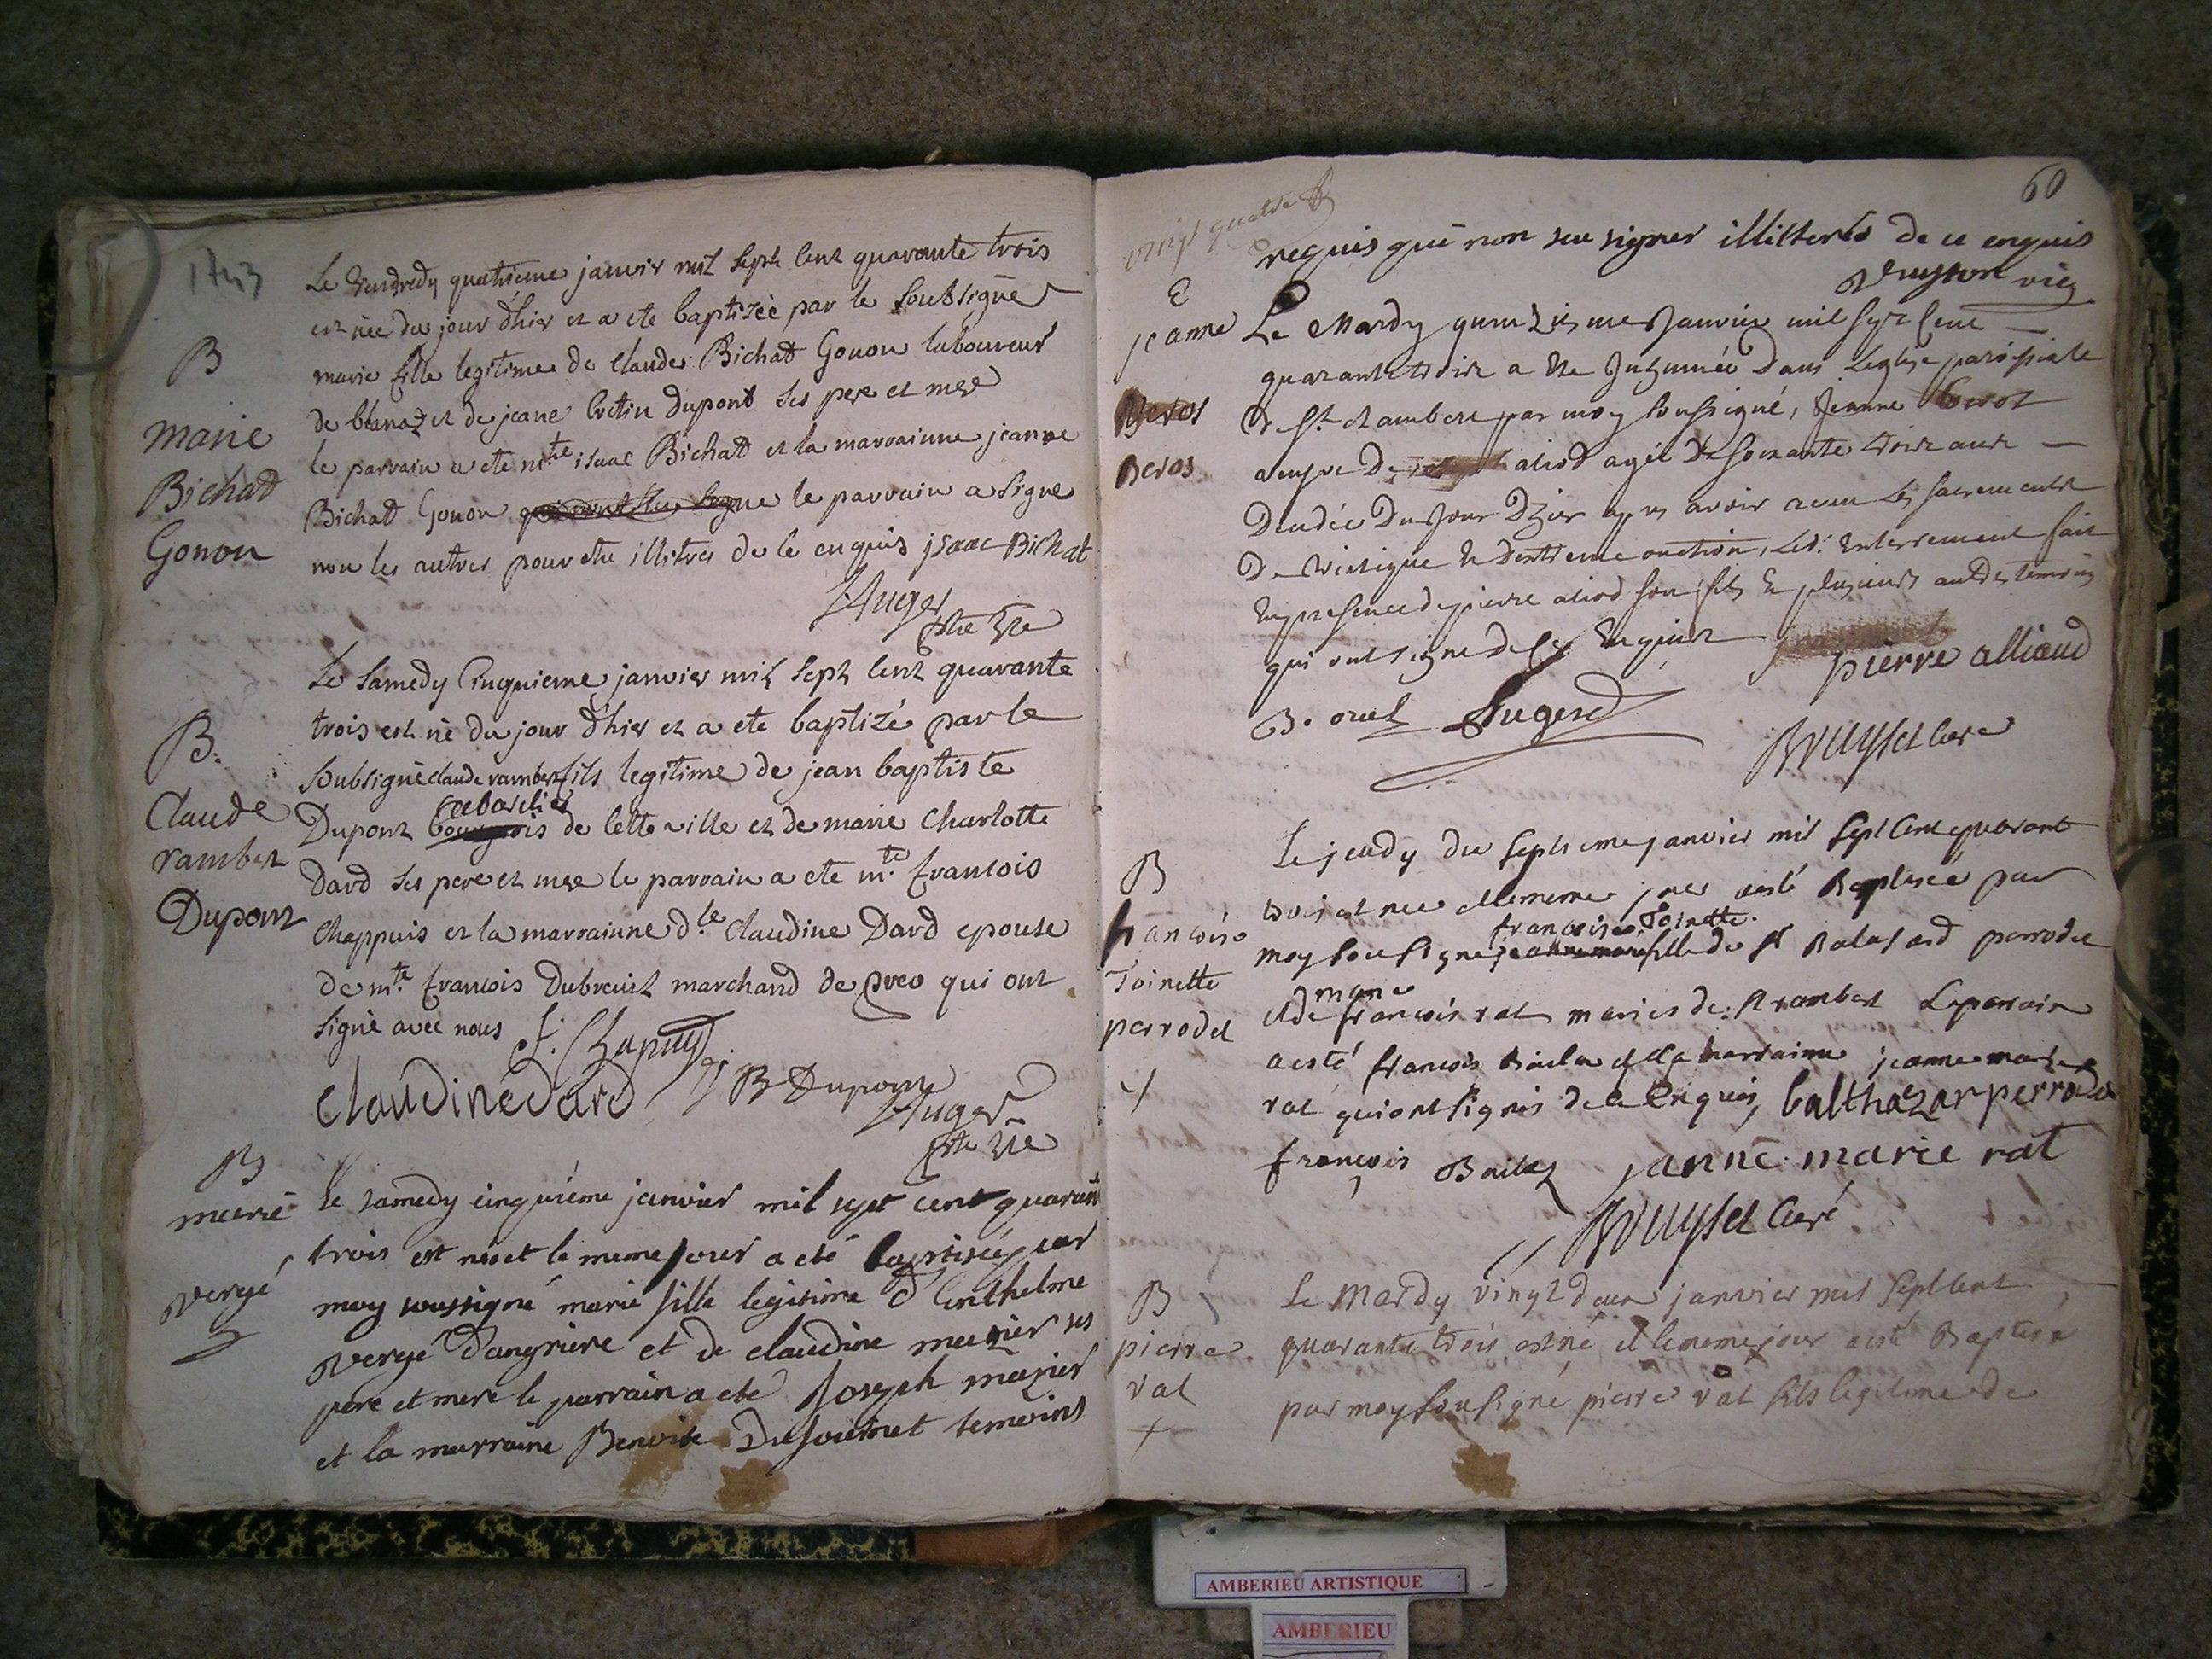 1743
B
marie
Bichat
Gonon
Le Vendredy quatrieme janvier mil sept cent quarante trois
est née du jour d'hier et a ete baptizée par le soubsigné
marie fille legitime de claude Bichat Gonon laboureur
de blanaz et de jeane Cretin dupont ses pere et mere
le parrain a ete m.tre isaac Bichat et la marrainne jeanne
Bichat Gonon le parrain a signe
non les autres pour etre illitres de ce enquis jsaac Bichat
Auger
ptre vre
B.
Claude
rambert
Dupont
Le samedy Cinquieme janvier mil sept cent quarante
trois est né du jour d'hier et a ete baptizé par le
soubsigné claude rambert fils legitime de jean baptiste
Dupont bourgeois de cette ville et de marie Charlotte
Dard ses pere et mere le parrain a ete m.tre francois
Chappuis et la marrainne d.lle Claudine Dard epouse
de m.tre francois Dubreuil marchand de qui ont
signé avec nous f. Chapuis
claudine dard J B Dupont
Auger
ptre vre
B
marie
vergé
Le samedy cinquiéme janvier mil sept cent quarante
trois est née et le meme jour a eté baptisée par
moy soussigné marie fille legitime d'Anthelme
vergé d'angriere et de claudine mezier ses
pere et mere le parrain a eté Joseph mezier
et la marraine Benoite Dufournet temoins
60
vingt quatre
requis qui n'on sceu signer illitterés de ce enquis
vic
E
jeanne
Beros
Beros
Le Mardy quinzieme Janvier mil sept cent
quarante trois a ete Inhumée dans L'eglise paroissiale
de St. Rambert par moy soussigné, Jeanne Beros
veufve de aliod agée de soixante trois ans
Decedée du Jour D'hier apres avoir receu les sacrements
De viatique et d'extreme onction, Led: Enterrement fait
En presence de pierre aliod son fils et plusieurs autres temoins
qui ont signe de ce Enquis
pierre alliaud
B. oriel Augerd
Bruyset Curé
B
françoise
Toinette
perrodet
Le jeudy dix septieme janvier mil sept cent quarante
trois est nee et le meme jour a esté Baptisée par
francoise Toinette.
moy sousigné jeanne marie fille de sr Balasard perrodet
marie
et de francois rat maries de st rambert Le parrain
a esté françois Bailer et la marraine jeanne marie
rat qui ont signés de ce enquis, balthazar perrodet
françois Bailez janne marie rat
Bruyset Curé
B
pierre
rat
Le Mardy vingt deux janvier mil sept cent
quarante trois est né et le meme jour a esté Baptisé
par moy sousigné pierre rat fils legitime de
AMBERIEU ARTISTIQUE
AMBERIEU